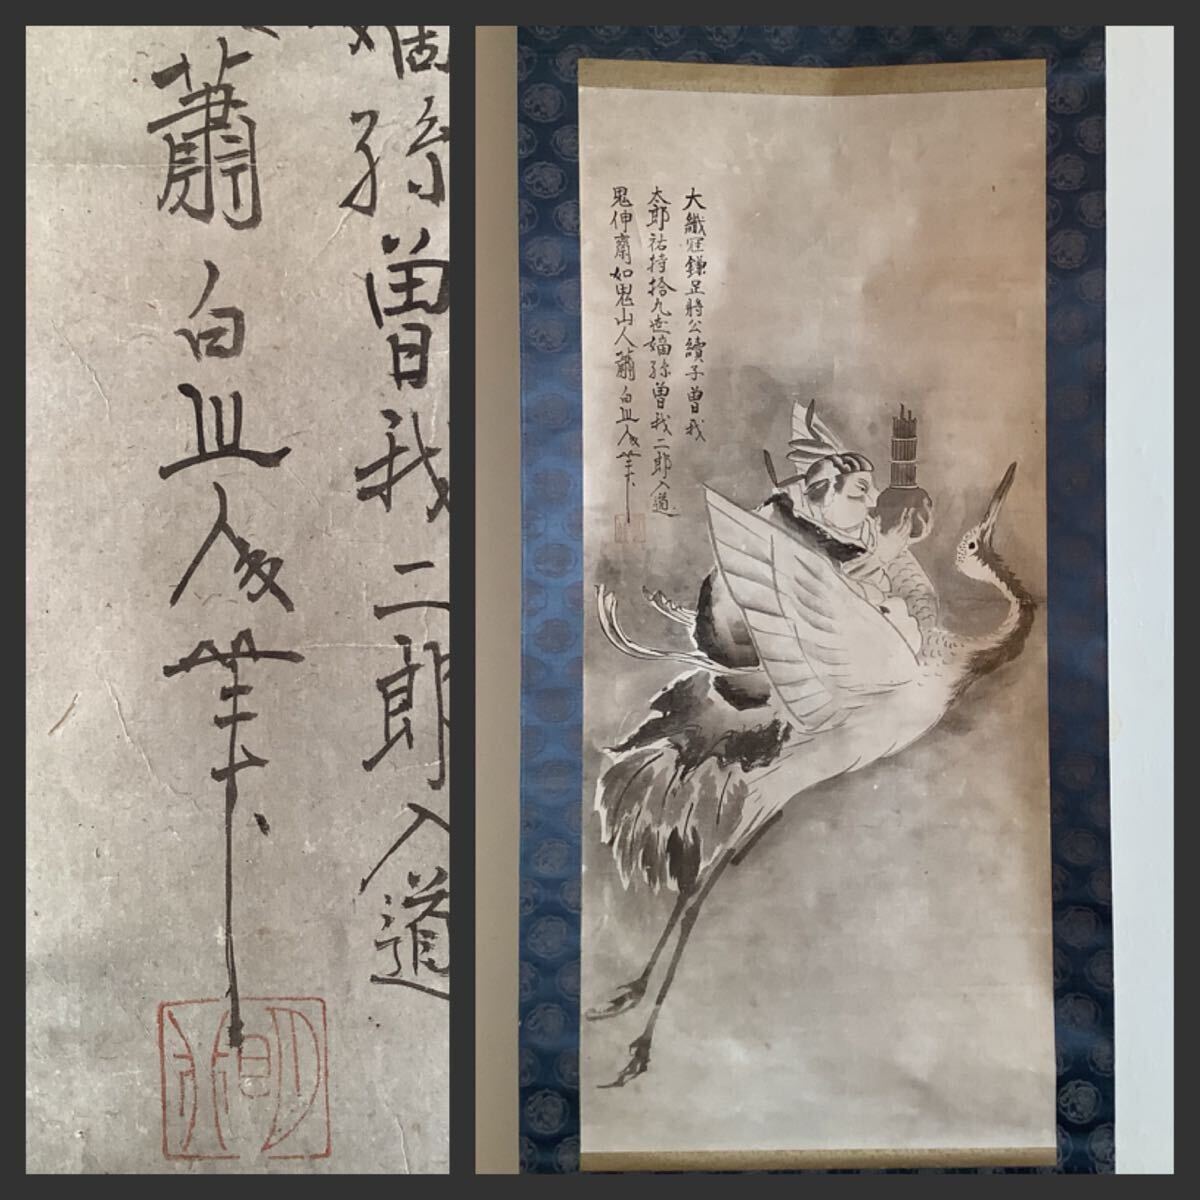 大織冠鎌足將公續子曽我
太郎祐持拾九世嫡孫曽我二郎入道
鬼神齋如鬼山人蕭白
筆
孫曽我二郎入道
蕭白
筆